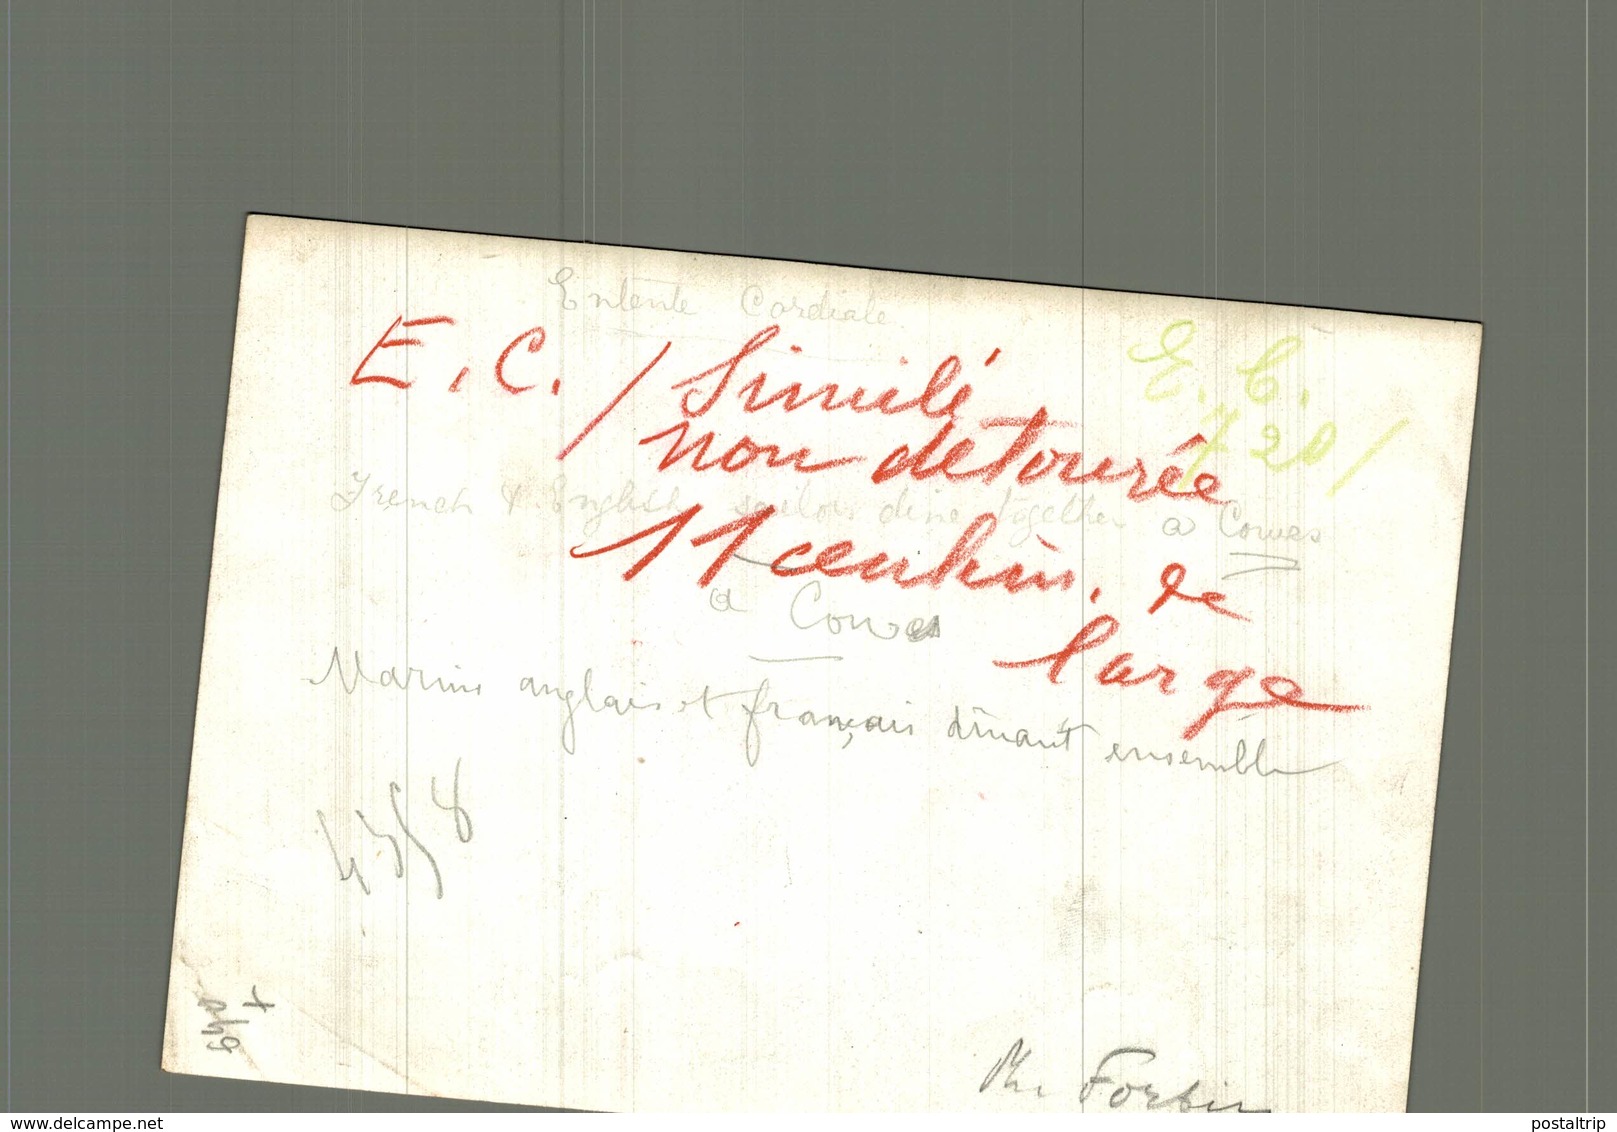 Entente Cordiale
E.C. / Similé
non detourée
E. C.
720/
French & English sailors dine together a Cowes
11 centim. de
large
a Cowes
Marins anglais et français dînant ensemble
Ph. Forbin
www.delcampe.net
postaltrip